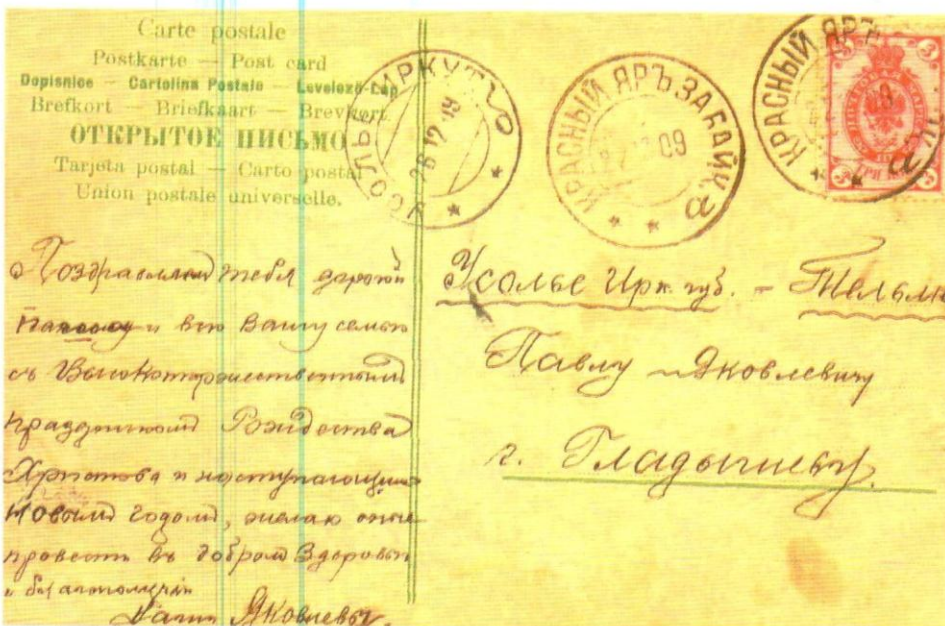 Carte postale
Postkarte — Post card
Dopisnice — Cartolina Postale — Levelező-Lap
Brefkort — Briefkaart — Brevkort
ОТКРЫТОЕ ПИСЬМО
Tarjeta postal — Carto postal
Union postale universelle.
УСОЛЬЕ ИРКУТ
28 12 09
КРАСНЫЙ ЯРЪ ЗАБАЙК.
09
а
КРАСНЫЙ ЯРЪ
а
3 3
3 3
ТРИ
Поздравляю тебя дорогой
и всю Вашу семью
съ Высокоторжественнымъ
праздникомъ Рождества
Христова и наступающимъ
Новымъ годомъ, желаю оные
провести въ добромъ Здоровьи
и благополучии
Яковлевъ.
Усолье Ирк. губ. – Тельма
Павлу Яковлевичу
г. Гладышеву.